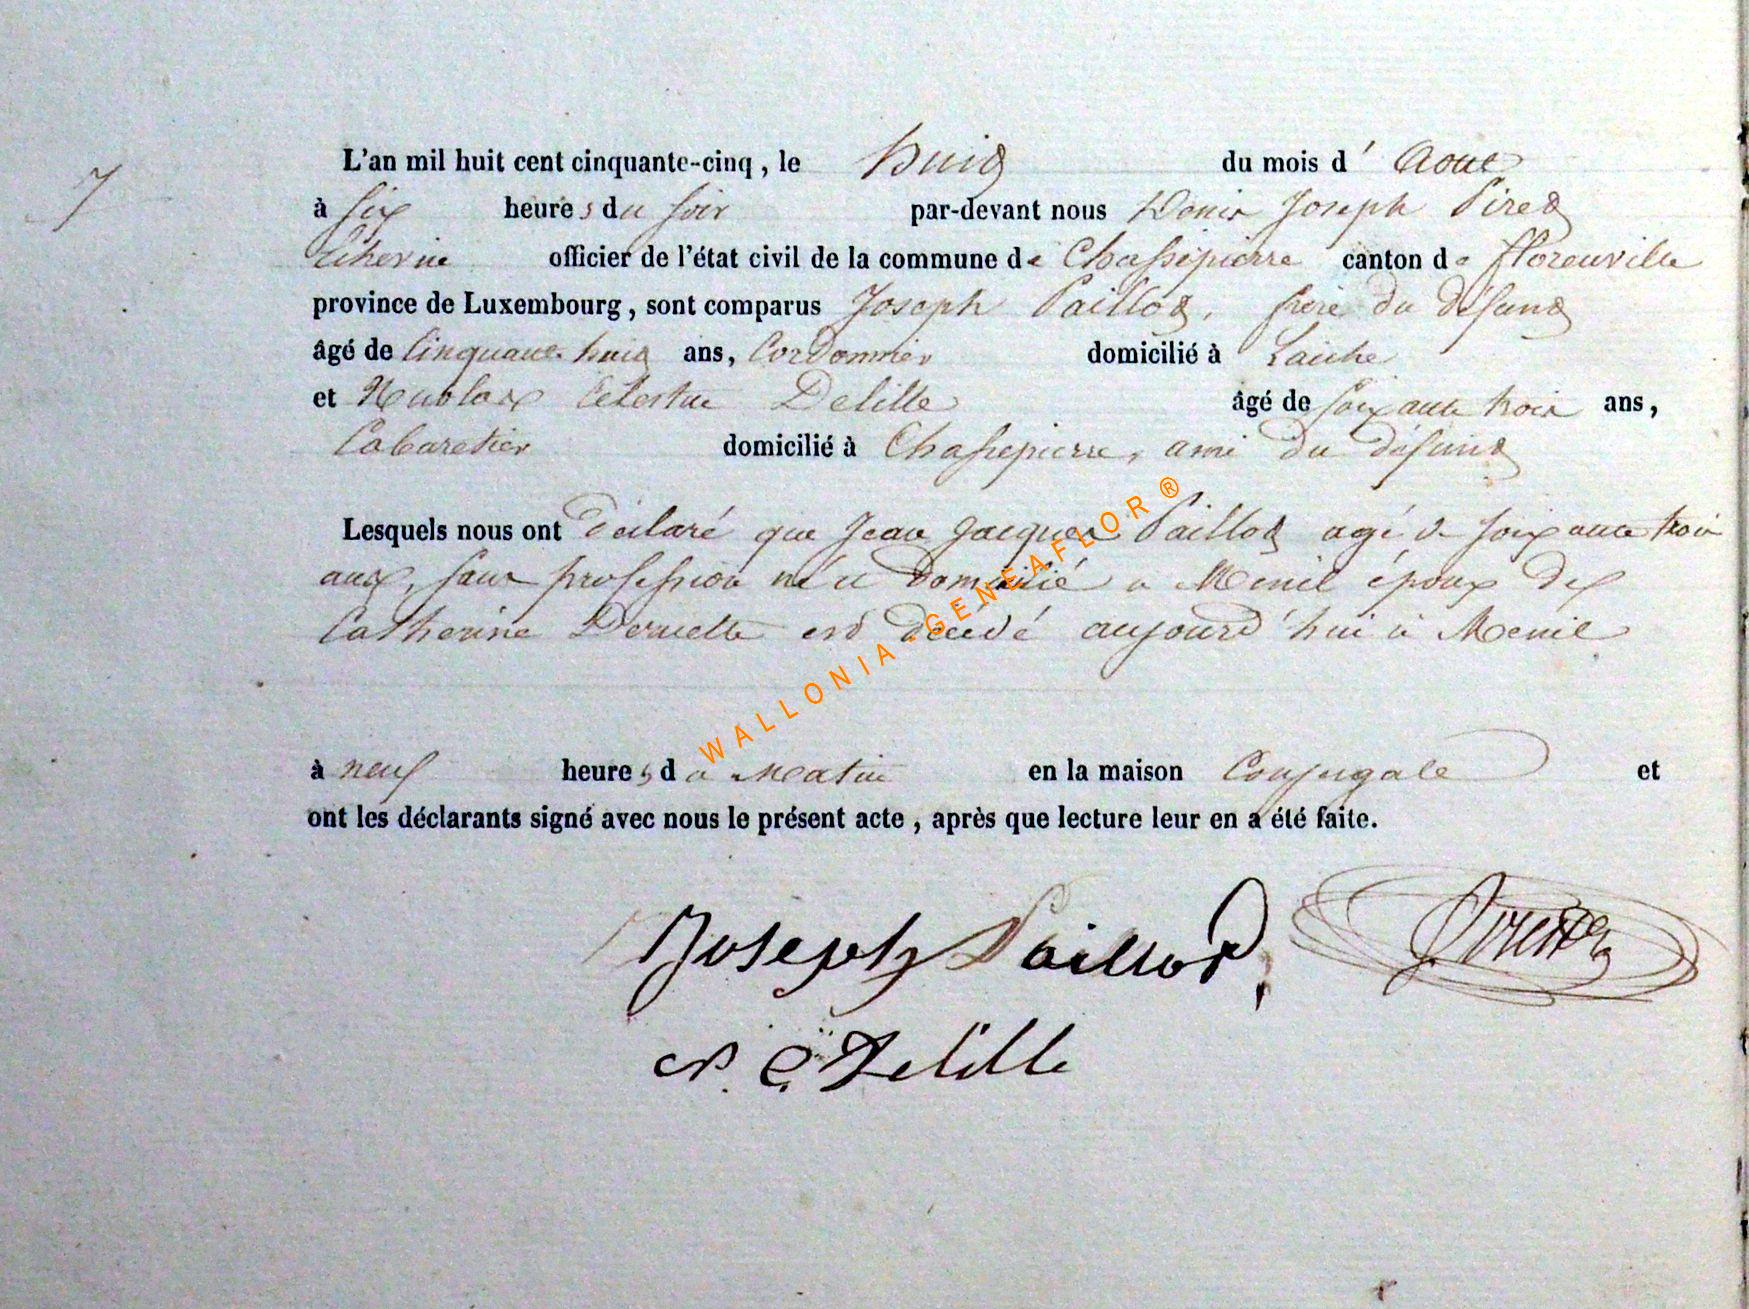 7
L'an mil huit cent cinquante-cinq, le huit du mois d' Aout
à six heures du soir par-devant nous Denis Joseph Piret
officier de l'état civil de la commune de Chassepierre canton de florenville
province de Luxembourg, sont comparus Joseph Paillot, frere du défunt
âgé de Cinquante huit ans, Cordonnier domicilié à Laiche
et Nicolas Celestin Delille âgé de soixante trois ans,
Cabaretier domicilié à Chassepierre, ami du défunt
Lesquels nous ont déclaré que Jean Jacques Paillot agé de soixante trois
ans, sans profession né et domicilié a Menil époux de
Catherine est décédé aujourd'hui à Menil
à neuf heures du Matin en la maison Conjugale et
ont les déclarants signé avec nous le présent acte, après que lecture leur en a été faite.
Joseph Paillot
N. C. Delille
WALLONIA-GENEAFLOR ®